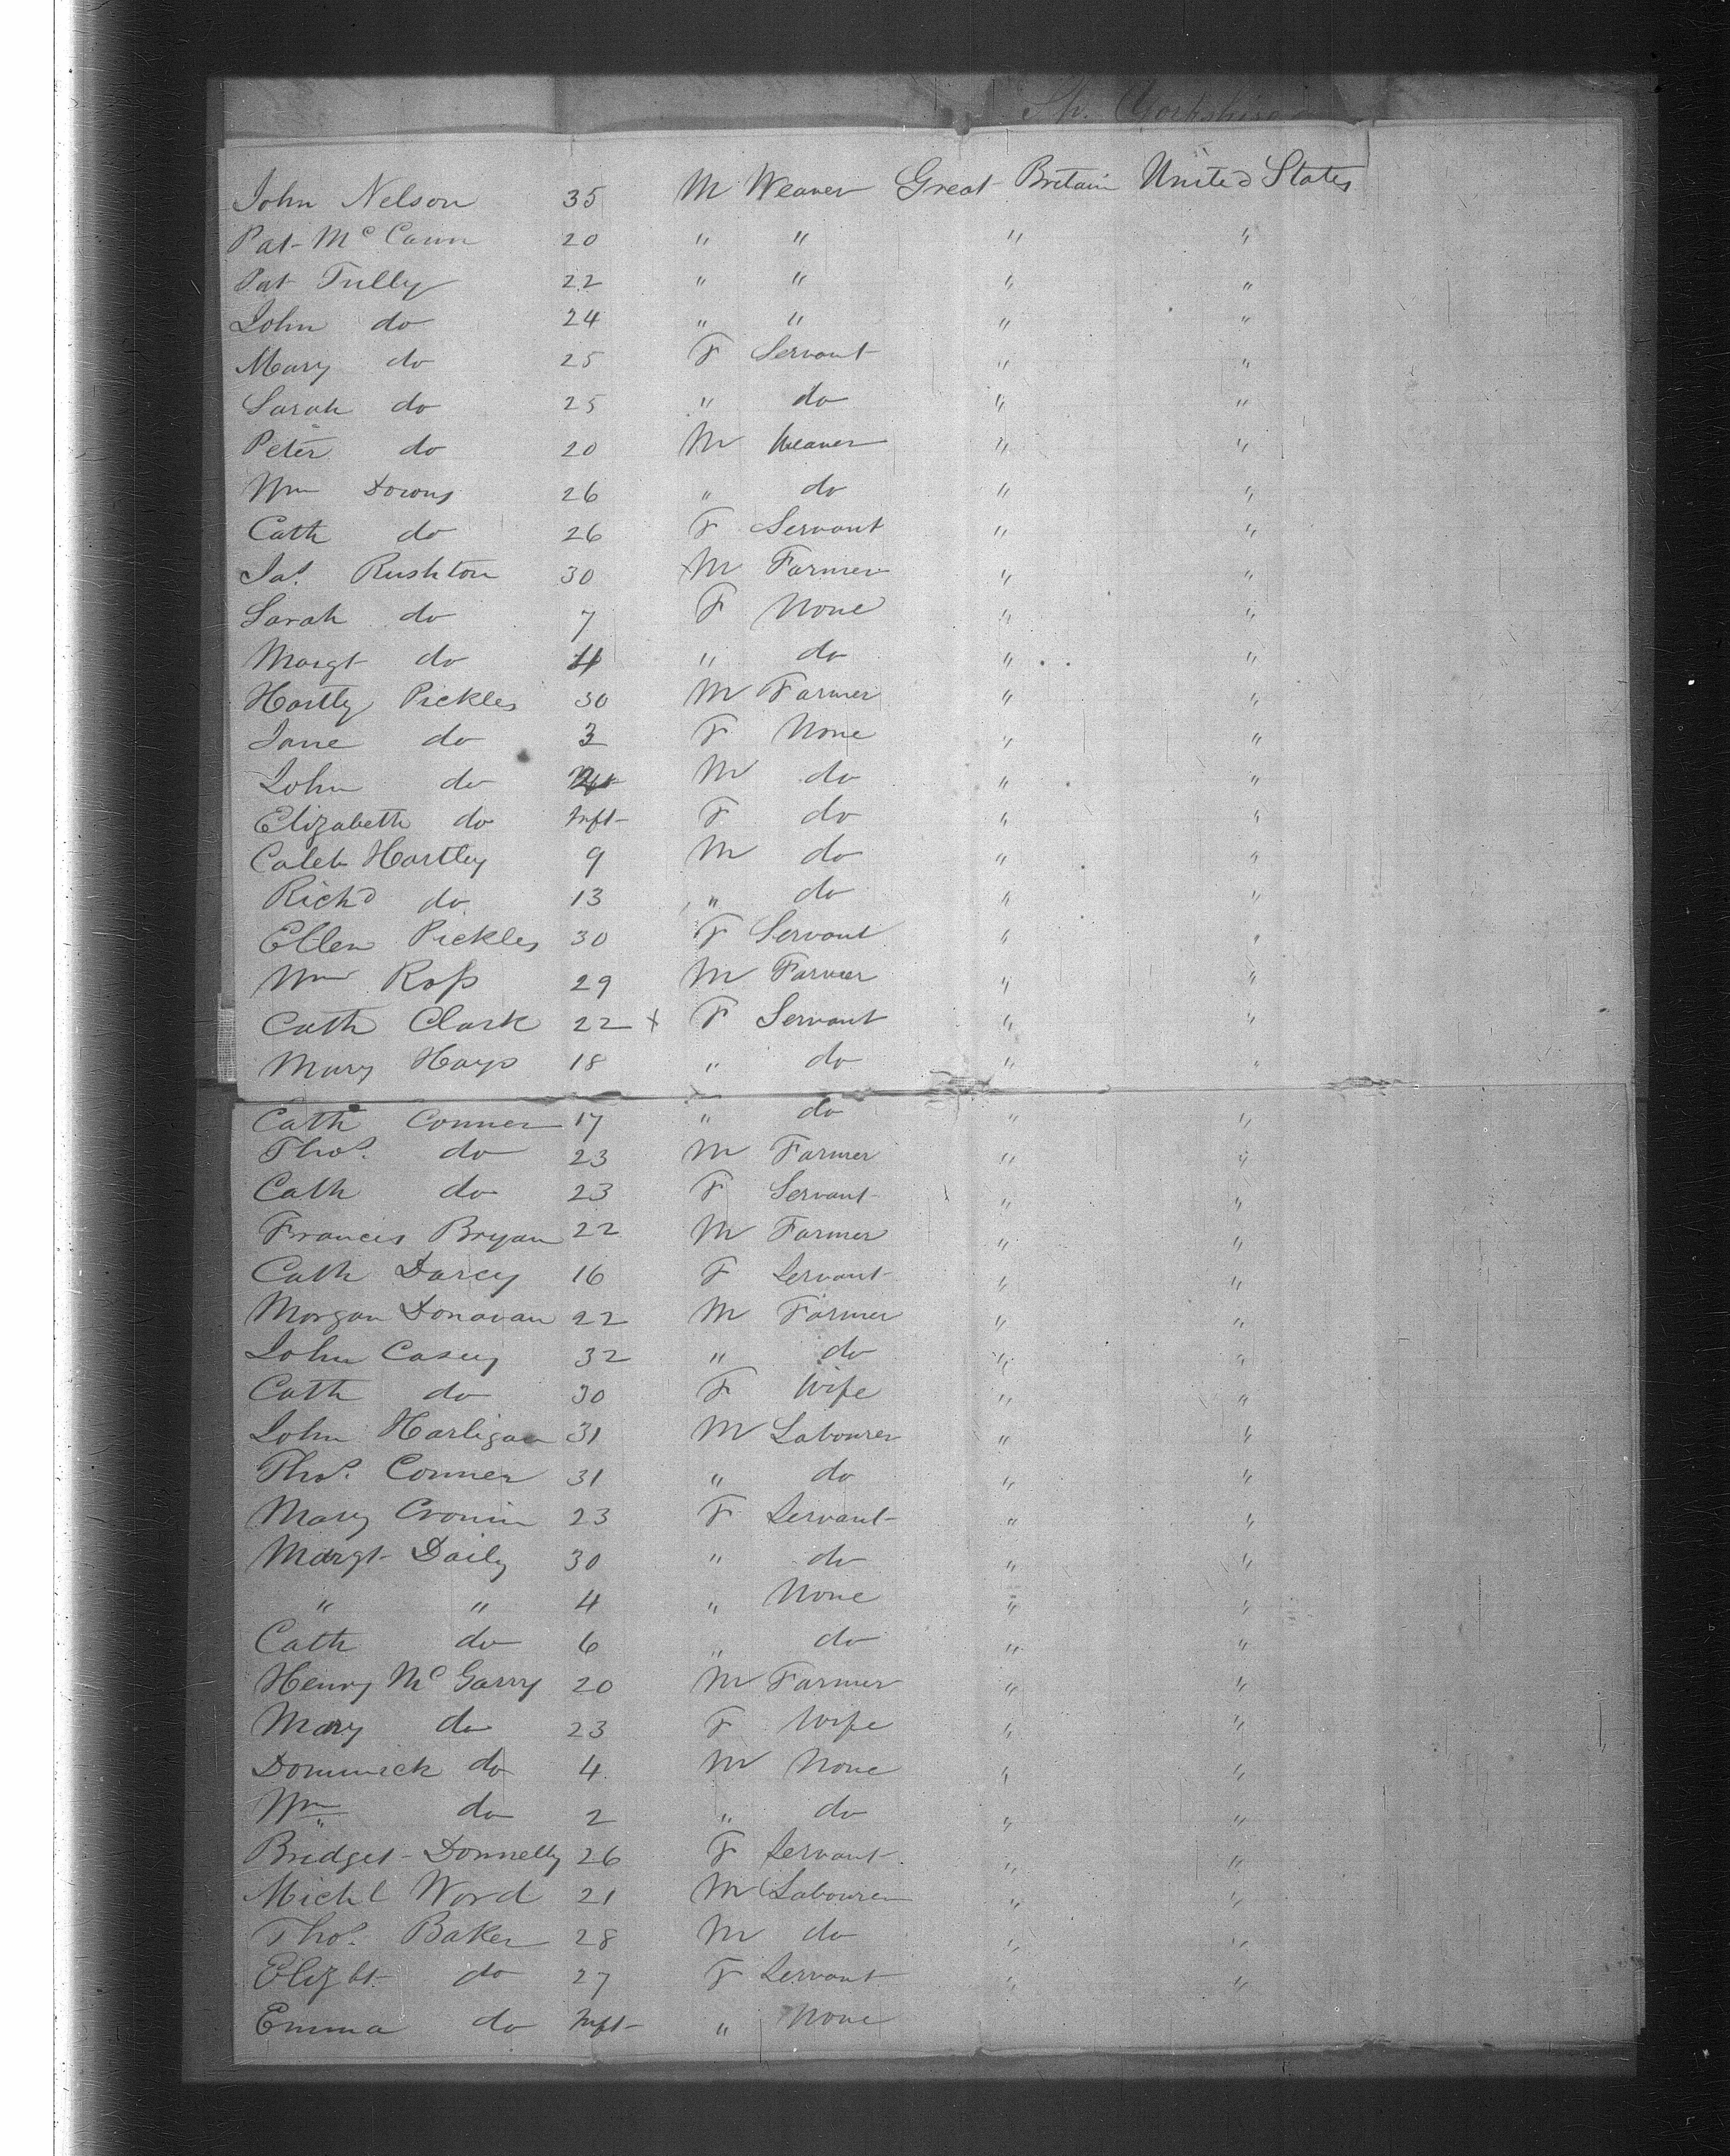 Sh. Yorkshire
John Nelson 35 M Weaver Great Britain United States
Pat McCann 20 " " " "
Pat Tully 22 " " " "
John do 24 " " " "
Mary do 25 F Servant " "
Sarah do 25 " do " "
Peter do 20 M Weaver " "
Wm Downs 26 " do " "
Cath do 26 F Servant " "
Jas. Rushton 30 M Farmer " "
Sarah do 7 F None " "
Margt do 4 " do " "
Hartly Pickles 30 M Farmer " "
Jane do 3 F None " "
John do M do " "
Elizabeth do Inft F do " "
Caleb Hartley 9 M do " "
Richd do 13 " do " "
Ellen Pickles 30 F Servant " "
Wm Ross 29 M Farmer " "
Cath Clark 22 x F Servant " "
Mary Hays 18 " do " "
Cath Conner 17 " do " "
Thos. do 23 M Farmer " "
Cath do 23 F Servant " "
Francis Bryan 22 M Farmer " "
Cath Darcy 16 F Servant " "
Morgan Donavan 22 M Farmer " "
John Casey 32 " do " "
Cath do 30 F Wife " "
John Harligan 31 M Labourer " "
Thos. Conner 31 " do " "
Mary Cronin 23 F Servant " "
Margt Daily 30 " do " "
" " 4 " None " "
Cath do 6 " do " "
Henry McGarry 20 M Farmer " "
Mary do 23 F Wife " "
Dominick do 4 M None " "
Wm do 2 " do " "
Bridget Donnelly 26 F Servant " "
Michl Word 21 M Labourer " "
Thos. Baker 28 M do " "
Elizbt do 27 F Servant " "
Emma do Inft " None